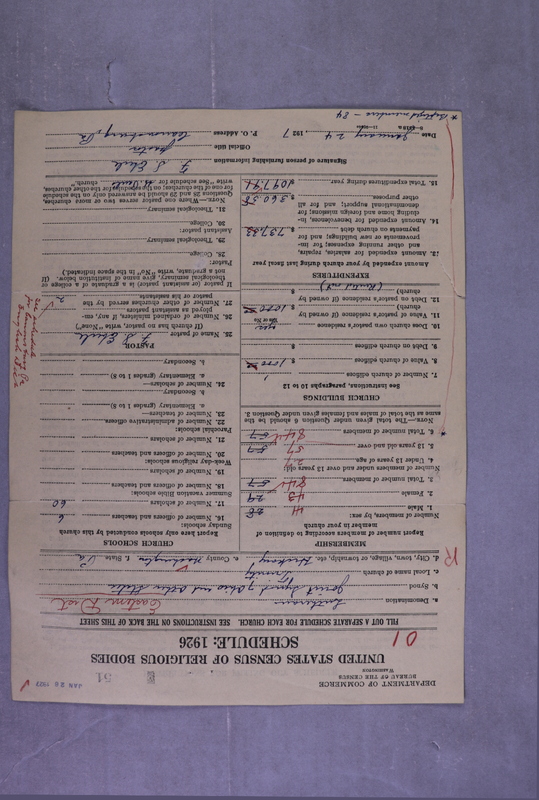 DEPARTMENT OF COMMERCE
BUREAU OF THE CENSUS
WASHINGTON
51
JAN 28 1927
UNITED STATES CENSUS OF RELIGIOUS BODIES
SCHEDULE: 1926
01
FILL OUT A SEPARATE SCHEDULE FOR EACH CHURCH. SEE INSTRUCTIONS ON THE BACK OF THIS SHEET
a. Denomination Lutheran Eastern Dist
b. Synod Joint Synod of Ohio and other States
c. Local name of church Trinity
d. City, town, village, or township, etc. Hickory e. County Washington f. State Pa
R
MEMBERSHIP
Report number of members according to definition of member in your church
Number of members, by sex:
1. Male 41 28
2. Female 43 29
3. Total number of members 84 57
Number of members under and over 13 years old:
4. Under 13 years of age
5. 13 years old and over 57
6. Total number of members 84 57
NOTE.—The total given under Question 6 should be the same as the total of males and females given under Question 3.
CHURCH BUILDINGS
See instructions, paragraphs 10 to 12
7. Number of church edifices 1
8. Value of church edifices $
9. Debt on church edifices $
10. Does church own pastor's residence yes
Yes or No
11. Value of pastor's residence (if owned by church) $
12. Debt on pastor's residence (if owned by church) $
EXPENDITURES
Amount expended by your church during last fiscal year
13. Amount expended for salaries, repairs, and other running expenses; for improvements or new buildings; and for payments on church debt $
14. Amount expended for benevolences, including home and foreign missions; for denominational support; and for all other purposes $
15. Total expenditures during year $
CHURCH SCHOOLS
Report here only schools conducted by this church
Sunday schools:
16. Number of officers and teachers 6
17. Number of scholars 60
Summer vacation Bible schools:
18. Number of officers and teachers
19. Number of scholars
Week-day religious schools:
20. Number of officers and teachers
21. Number of scholars
Parochial schools:
22. Number of administrative officers
23. Number of teachers—
a. Elementary (grades 1 to 8)
b. Secondary
24. Number of scholars—
a. Elementary (grades 1 to 8)
b. Secondary
PASTOR
25. Name of pastor
(If church has no pastor, write "None")
26. Number of ordained ministers, if any, employed as assistant pastors
27. Number of other churches served by the pastor or his assistants 2
If pastor (or assistant pastor) is a graduate of a college or theological seminary, give name of institution below. (If not a graduate, write "No" in the space indicated.)
Pastor:
28. College
29. Theological seminary
Assistant pastor:
30. College
31. Theological seminary
NOTE.—Where one pastor serves two or more churches, Questions 28 and 29 should be answered only on the schedule for one of the churches; on the schedules for the other churches, write "See schedule for church."
Signature of person furnishing information
Official title pastor
Date January 24, 1927 P. O. Address Canonsburg, Pa
* Baptized members - 84